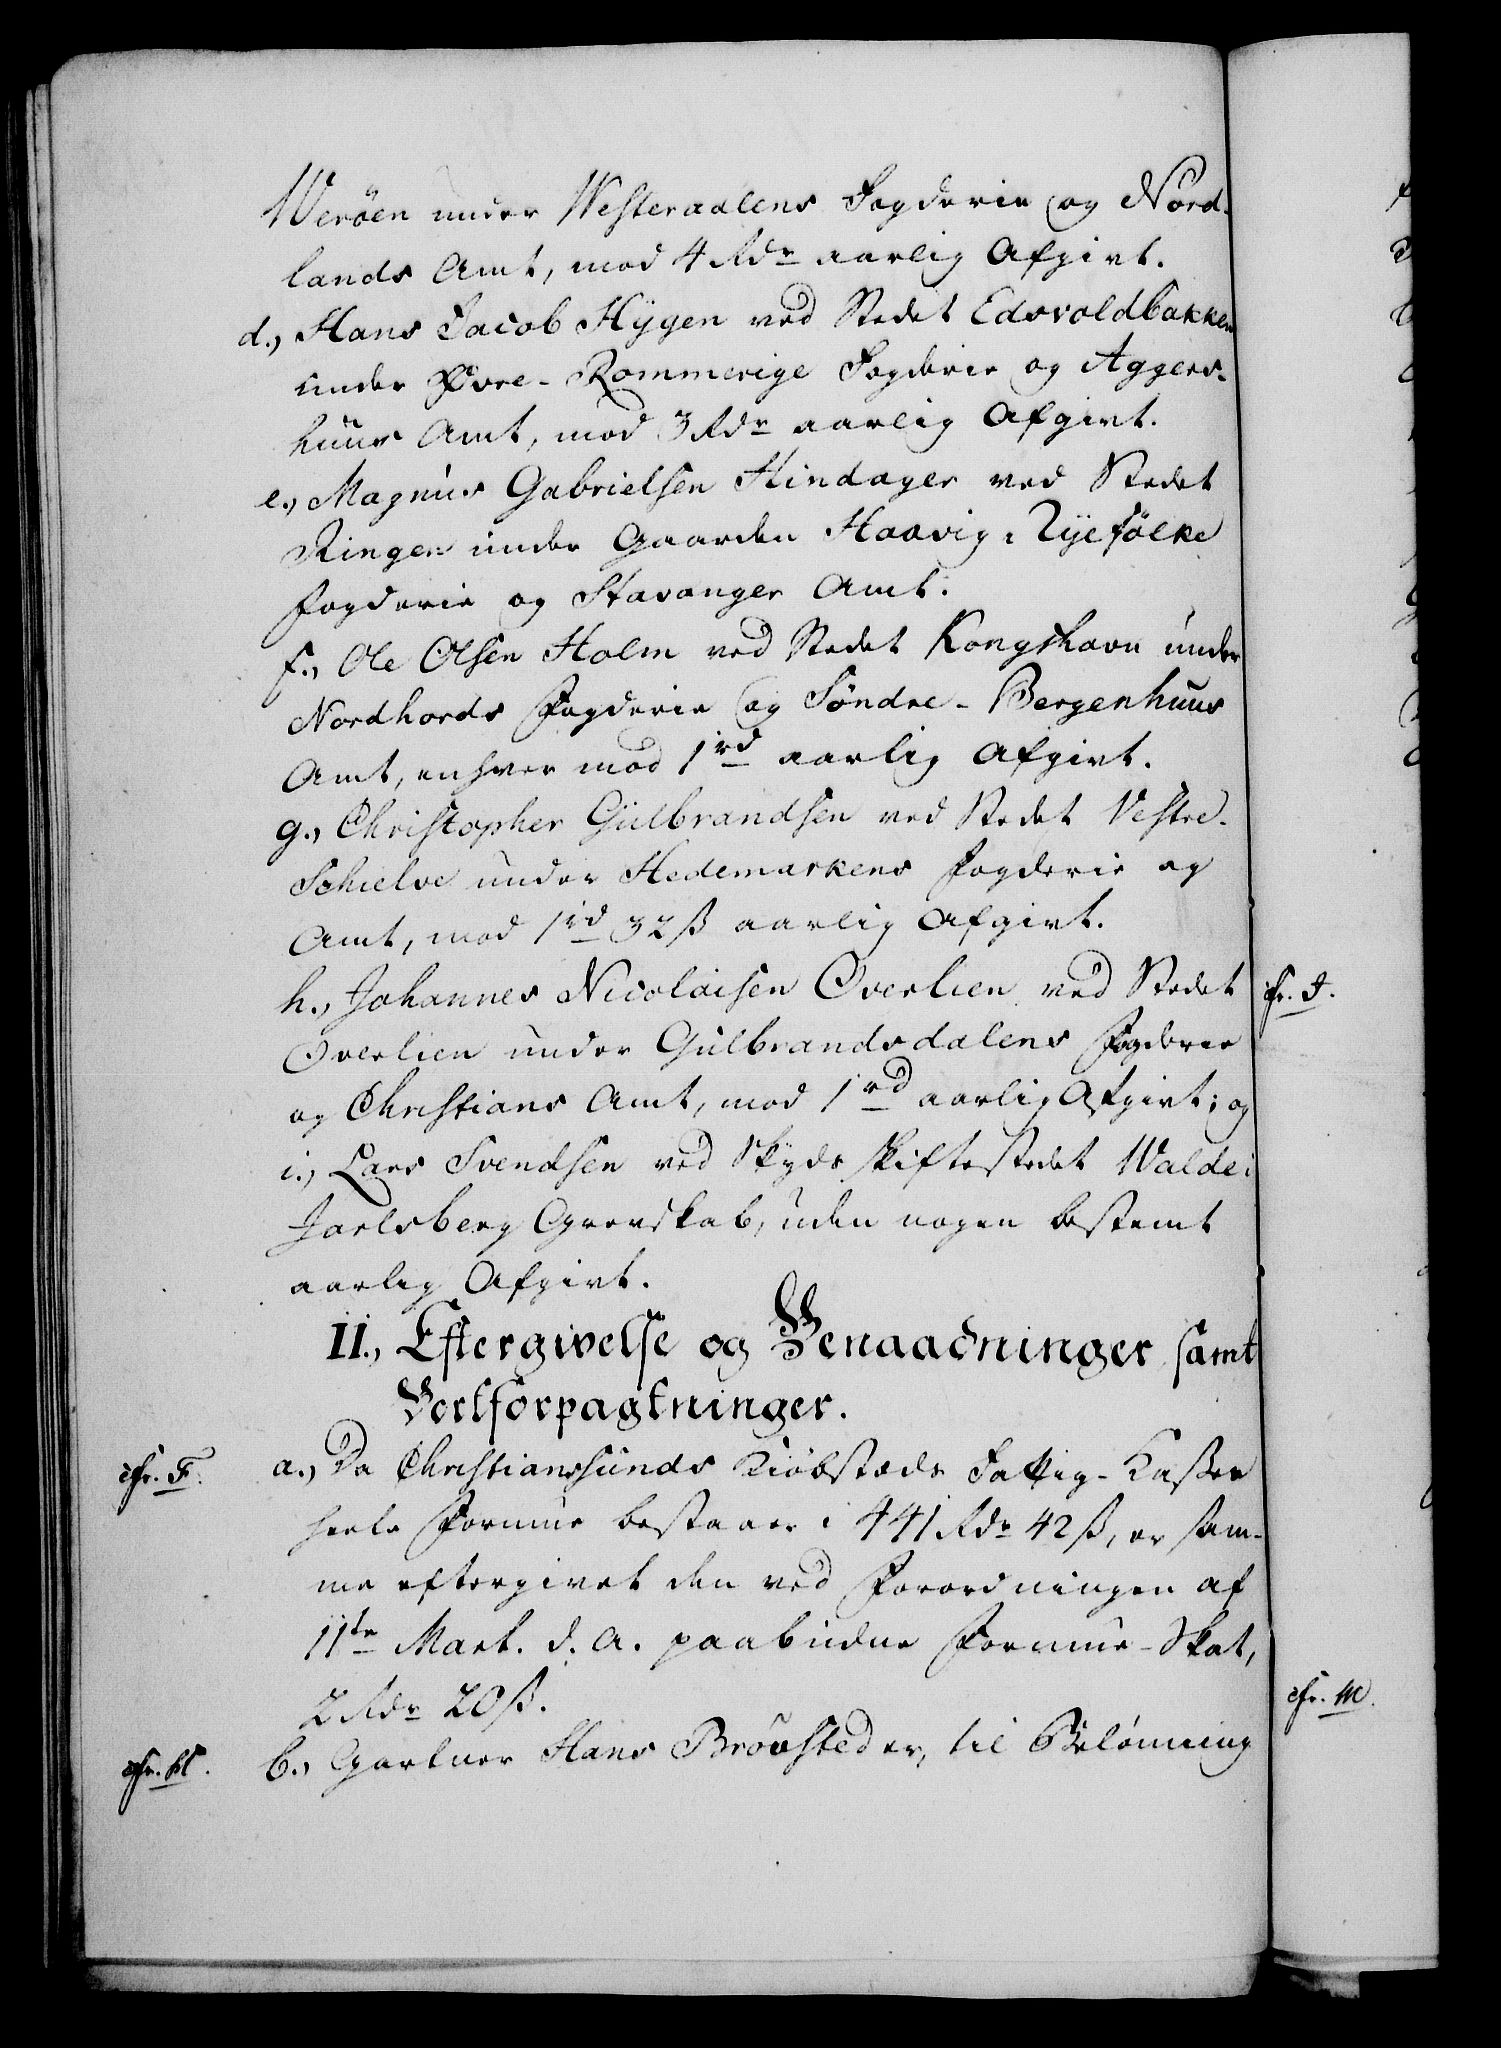 Werøen under Westeraalens Fogderie og Nord-
lands Amt, mod 4 Rdr aarlig Afgivt.
d., Hans Jacob Hÿgen ved Stedet Edsvoldbakken
under Øvre-Rommerige Fogderie og Aggers-
huus Amt, mod 3 Rdr aarlig Afgivt.
e., Magnus Gabrielsen Hindager ved Stedet
Ringen under Gaarden Haavig i Ryefølke
Fogderie og Stavanger Amt.
f., Ole Olsen Holm ved Stedet Kongshavn under
Nordhords Fogderie og Söndre-Bergenhuus
Amt, enhver mod 1 rd aarlig Afgivt.
g., Christopher Gulbrandsen ved Stedet Vestre-
Schielve under Hedemarkens Fogderie og
Amt, mod 1 rd 32 ß aarlig Afgivt.
h., Johannes Nicolaisen Overlien ved Stedet
Overlien under Gulbrandsdalens Fogderie
og Christians Amt, mod 1 rd aarlig Afgivt; og
i., Lars Svendsen ved Skydsskiftestedet Walde i
Jarlsberg Grevskab, uden nogen bestemt
aarlig Afgivt.
II., Eftergivelse og Benaadninger samt
Bortforpagtninger.
cfr. F.
a., Da Christianssunds Kiøbstæds Fattig-Kasses
heele Formue bestaaer i 441 Rdr 42 ß, er sam-
me eftergivet den ved Forordningen af
11te Mart. d. A. paabudne Formue-Skat,
2 Rdr 20 ß.
b., Gartner Hans Brøvsted er, til Belønning
cfr. I.
cfr. M.